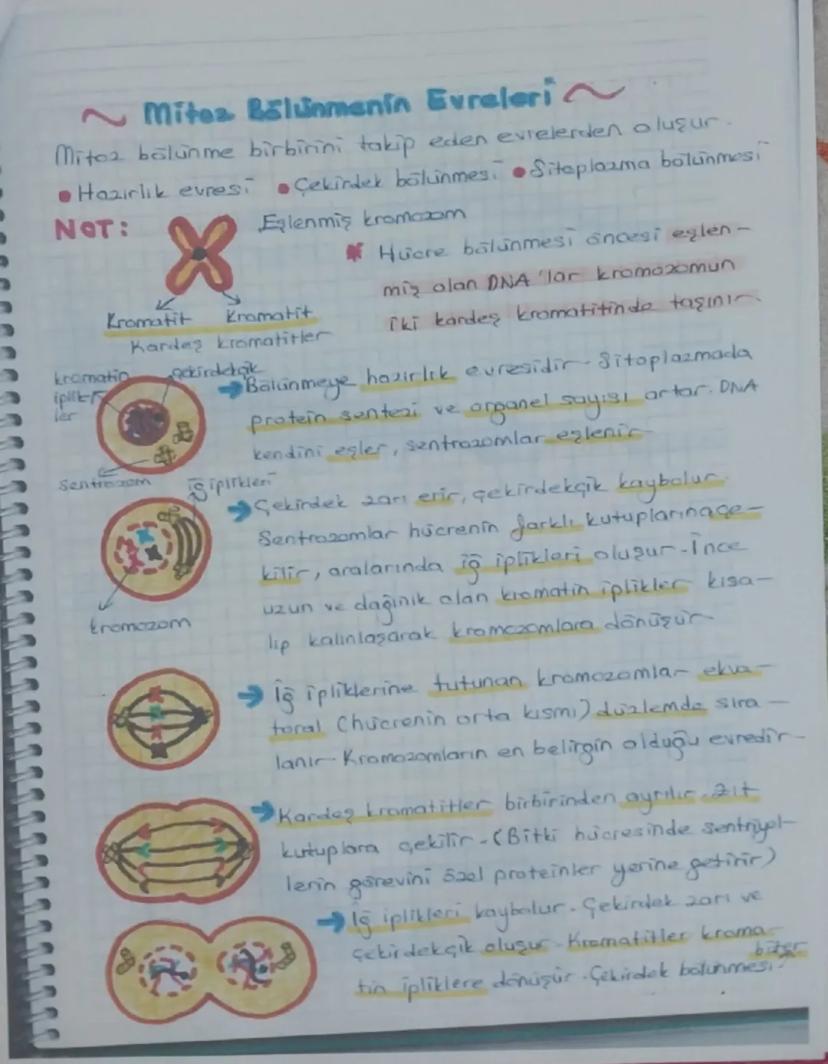 ~ Mitoz Bölünmenin Evreleri ~
Mitoz bölünme birbirini takip eden evrelerden oluşur.
• Hazırlık evresi • Çekirdek bölünmesi • Sitoplazma bölünmesi
NOT: Eşlenmiş kromozom
* Hücre bölünmesi öncesi eşlen-
miş olan DNA'lar kromozomun
iki kardeş kromatitinde taşınır.
Kromatit Kromatit
Kardeş kromatitler
kromatin çekirdekçik
iplik
ler
Sentrozom
→ Bölünmeye hazırlık evresidir. Sitoplazmada
protein sentezi ve organel sayısı artar. DNA
kendini eşler, sentrozomlar eşlenir
iğ iplikleri
kromozom
→ Çekirdek zarı erir, çekirdekçik kaybolur.
Sentrozomlar hücrenin farklı kutuplarına çe-
kilir, aralarında iğ iplikleri oluşur. İnce
uzun ve dağınık olan kromatin iplikler kısa-
lıp kalınlaşarak kromozomlara dönüşür
→ İğ ipliklerine tutunan kromozomlar ekva-
toral (hücrenin orta kısmı) düzlemde sıra-
lanır. Kromozomların en belirgin olduğu evredir
→ Kardeş kromatitler birbirinden ayrılır. Zıt
kutuplara çekilir. (Bitki hücresinde sentriyol-
lerin görevini özel proteinler yerine getirir)
→ İğ iplikleri kaybolur. Çekirdek zarı ve
çekirdekçik oluşur. Kromatitler kroma-
tin ipliklere dönüşür. Çekirdek bölünmesi
biter